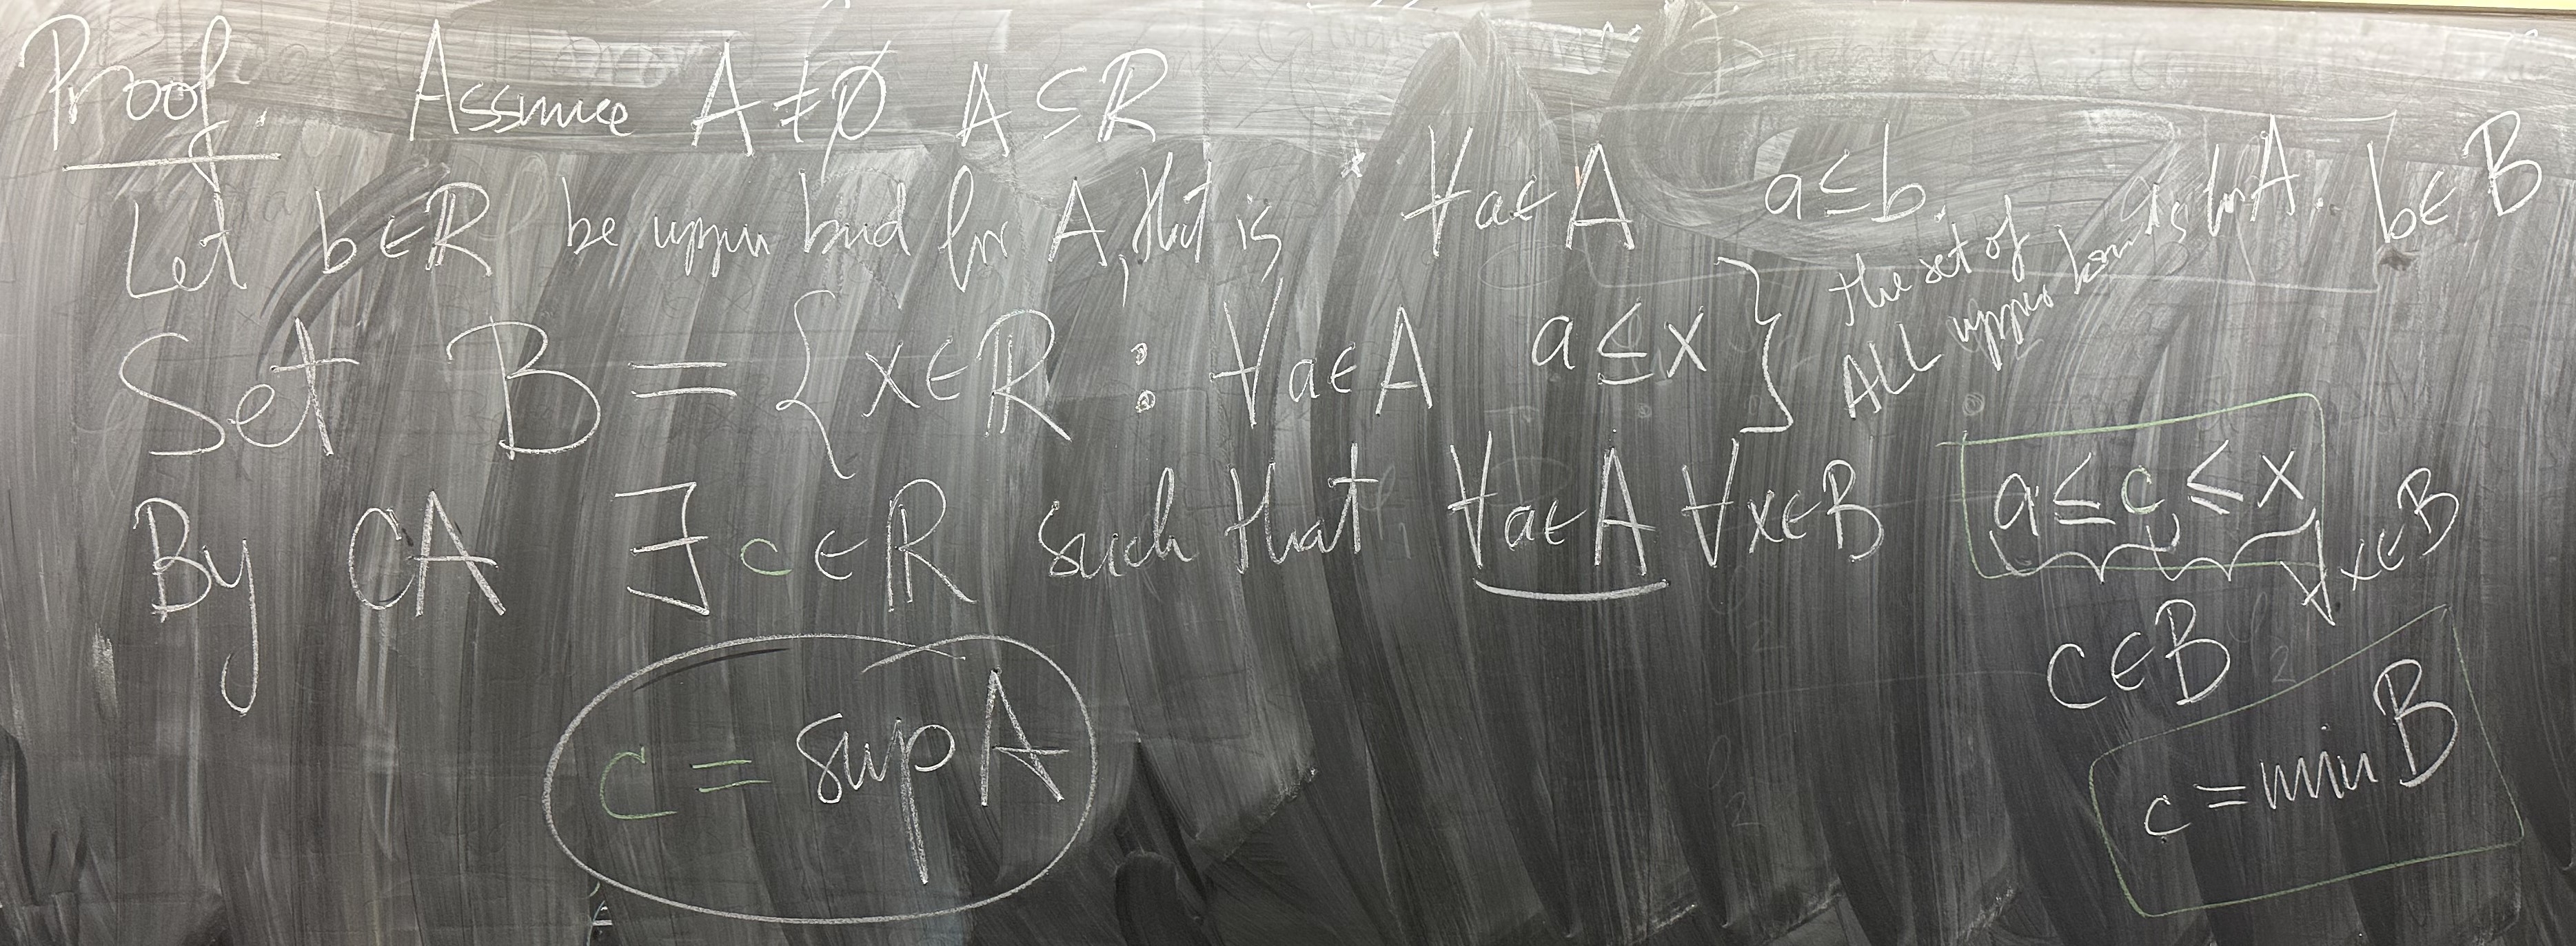 Proof. Assume A ≠ ∅ A ⊆ ℝ
Let b ∈ ℝ be upper bnd for A, that is ∀a∈A a ≤ b. b ∈ B
Set B = {x ∈ ℝ : ∀a∈A a ≤ x} the set of
ALL upper bounds for A.
By CA ∃ c ∈ ℝ such that ∀a∈A ∀x∈B a ≤ c ≤ x
∀x∈B
c ∈ B
c = sup A
c = min B